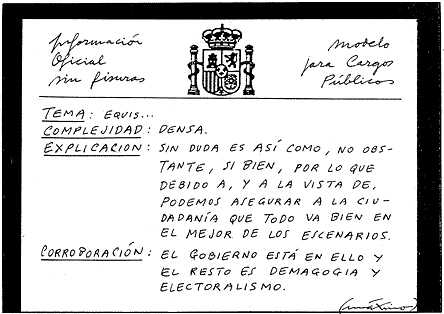 Información
Oficial
sin fisuras
Modelo
para Cargos
Públicos
TEMA: EQUIS...
COMPLEJIDAD: DENSA.
EXPLICACIÓN: SIN DUDA ES ASÍ COMO, NO OBS-
TANTE, SI BIEN, POR LO QUE
DEBIDO A, Y A LA VISTA DE,
PODEMOS ASEGURAR A LA CIU-
DADANÍA QUE TODO VA BIEN EN
EL MEJOR DE LOS ESCENARIOS.
CORROBORACIÓN: EL GOBIERNO ESTÁ EN ELLO Y
EL RESTO ES DEMAGOGIA Y
ELECTORALISMO.
(máximo)